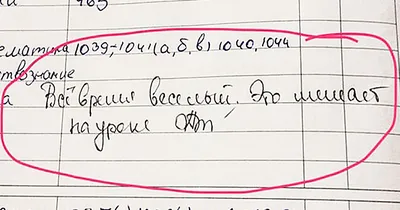 465
ематика 1039-1041(а,б,в) 1040,1044
ствознание
а Всё время веселый. Это мешает
на уроке